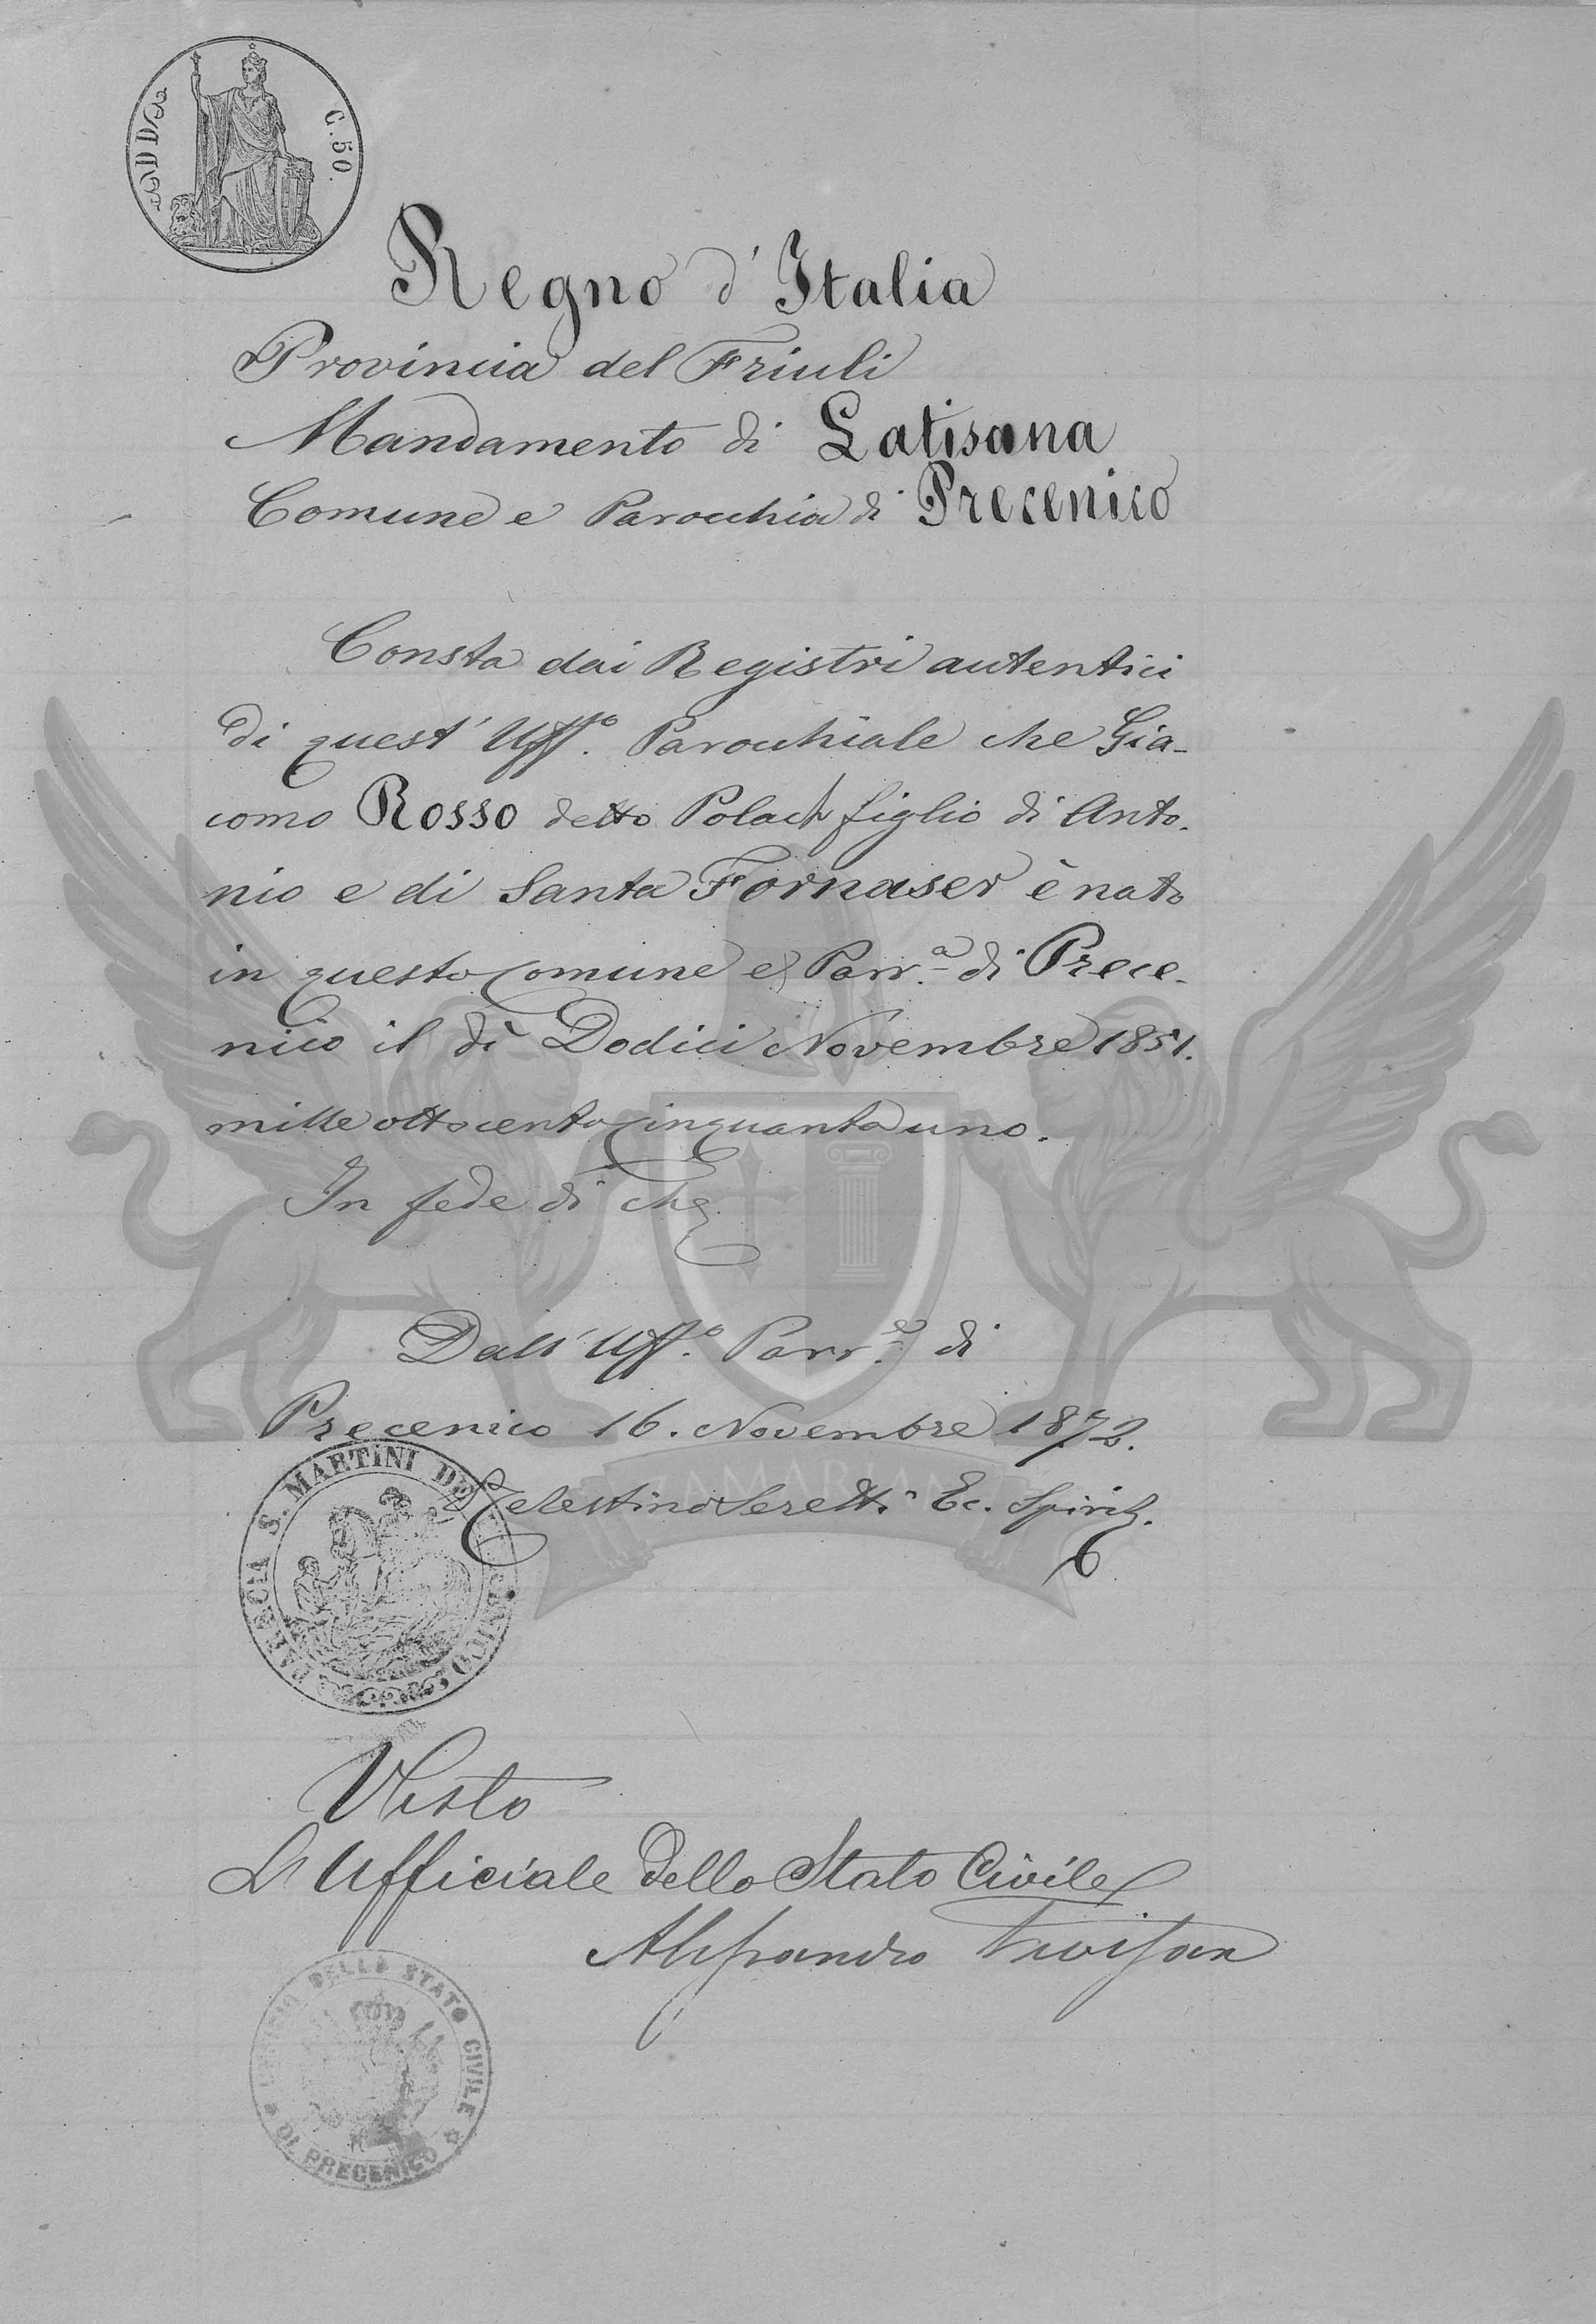 C. 50.
Regno d'Italia
Provincia del Friuli
Mandamento di Latisana
Comune e Parocchia di Precenico
Consta dai Registri autentici
di quest' Uffo. Parocchiale che Gia-
como Rosso detto Polach figlio di Anto-
nio e di Santa Fornaser è nato
in questo Comune e Parr.a di Prece-
nico il dì Dodici Novembre 1851.
mille ottocento cinquanta uno.
In fede di che
Dall' Uffo. Parr.e di
Precenico 16. Novembre 1872.
Celestino Seretti Ec. Spirit.
S. MARTINI
Visto
L'Ufficiale dello Stato Civile
Alessandro Trevisan
DELLO STATO CIVILE
DI PRECENICO